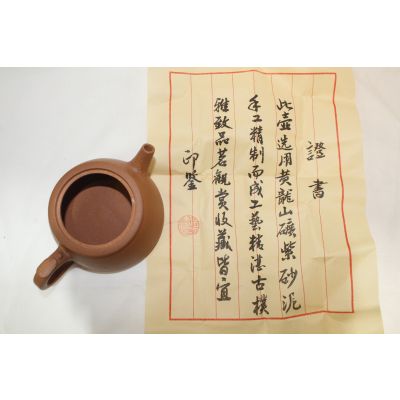 證書
此壺选用黄龍山礦紫砂泥
手工精制而成工藝精湛古樸
雅致品茗觀赏收藏皆宜
印鉴